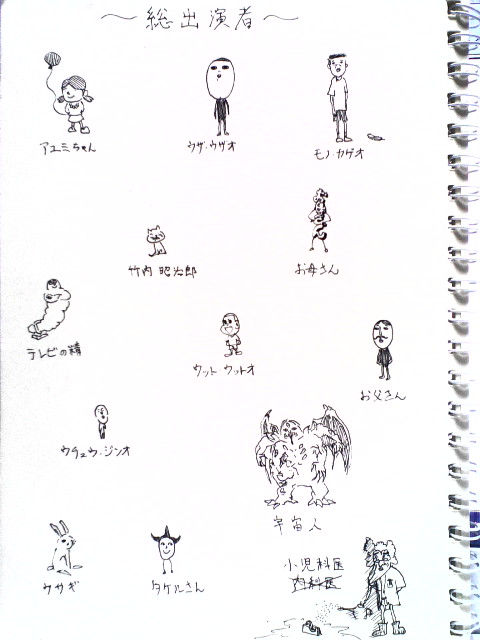 〜総出演者〜
アユミちゃん
ウザ・ウザオ
モノ・カゲオ
竹内 昭治郎
お母さん
テレビの精
ウット・ウットオ
お父さん
ウチュウ・ジンオ
宇宙人
ウサギ
タケルさん
小児科医
内科医